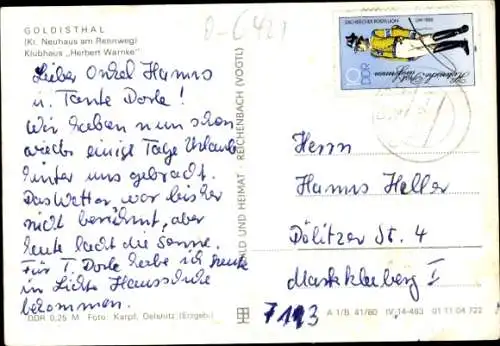 GOLDISTHAL
(Kr. Neuhaus am Rennweg)
Klubhaus „Herbert Warnke"
D-6421
Lieber Onkel Hanns
u. Tante Dorle!
Wir haben nun schon
wieder einige Tage Urlaub
hinter uns gebracht.
Das Wetter war bisher
nicht berühmt, aber
heute lacht die Sonne.
Für T. Dorle habe ich heute
in Lichte Hausschuhe
bekommen.
DDR 0,25 M Foto: Karpf, Oelsnitz (Erzgeb.)
BILD UND HEIMAT REICHENBACH (VOGTL)
SÄCHSISCHER POSTILLION
DDR
10
Herrn
Hanns Heller
Dölitzer St. 4
Markkleeberg I
7113
A 1/B 41/80 IV-14-483 01 11 04 722